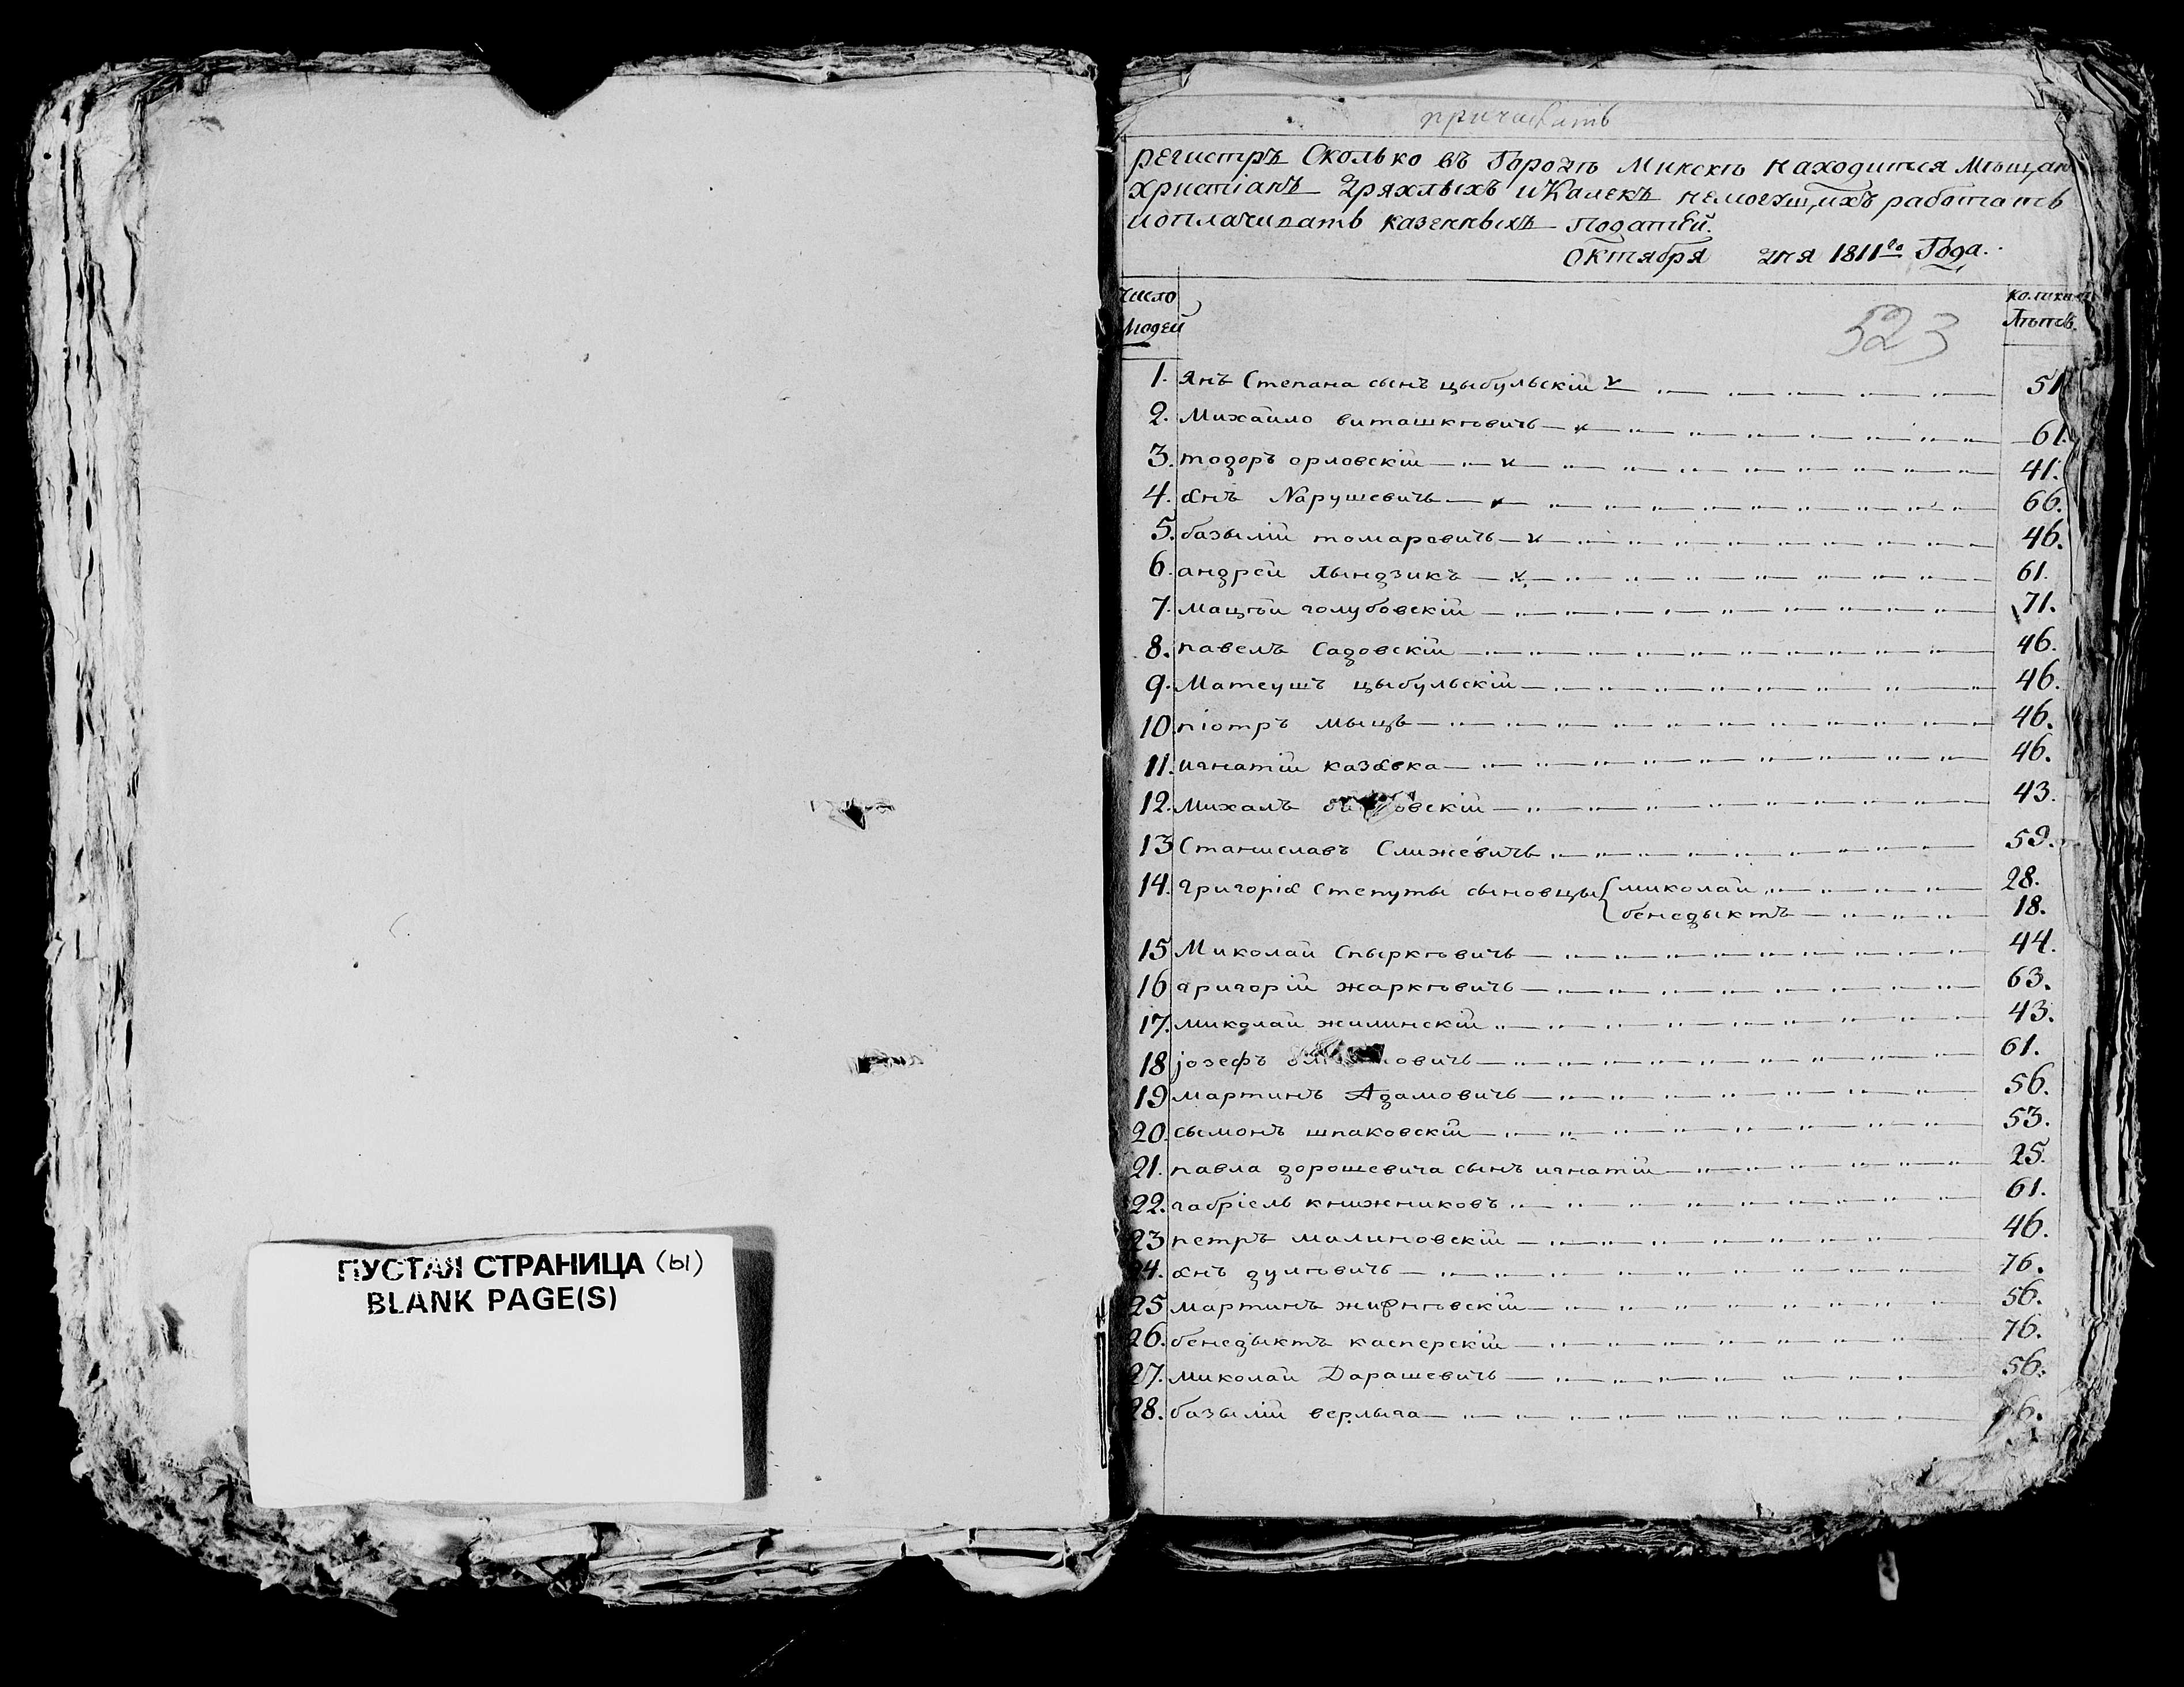 ПУСТАЯ СТРАНИЦА (ы)
BLANK PAGE(S)
регистръ Сколько въ Городѣ Минскѣ находится Мѣщан
христіанъ дряхлыхъ и Калекъ немогущихъ работать
иоплачивать казенныхъ податѣй.
Октября дня 1811го Года.
число людей
колико Лѣтъ
523
1. Янъ Степана сынъ цыбульскій 51
2. Михайло виташкѣвичъ 61.
3. тодоръ орловскій 41.
4. янъ Нарушевичъ 66.
5. базылій томаревичъ 46.
6. андрей лындзикъ 61.
7. Мацѣй голубовскій 71.
8. павелъ Садовскій 46.
9. Матеушъ цыбульскій 46.
10. піотръ мыцъ 46.
11. игнатій казявка 46.
12. Михалъ овскій 43.
13 Станиславъ Слижевичъ 59.
14. григорія Степуты сыновцы { миколай 28.
бенедыктъ 18.
15 Миколай Спыркѣвичъ 44.
16 григорій жаркѣвичъ 63.
17. миколай жилинскій 43.
18 јозефъ овичъ 61.
19 мартинъ Адамовичъ 56.
20. сымонъ шпаковскій 53.
21. павла дорошевича сынъ игнатій 25.
22. габріель книжниковъ 61.
23 петръ малиновскій 46.
24. янъ дулѣвичъ 76.
25 мартинъ 56.
26. бенедыктъ касперскій 76.
27. миколай Дарашевичъ 56.
28. базылій верлыга 6.